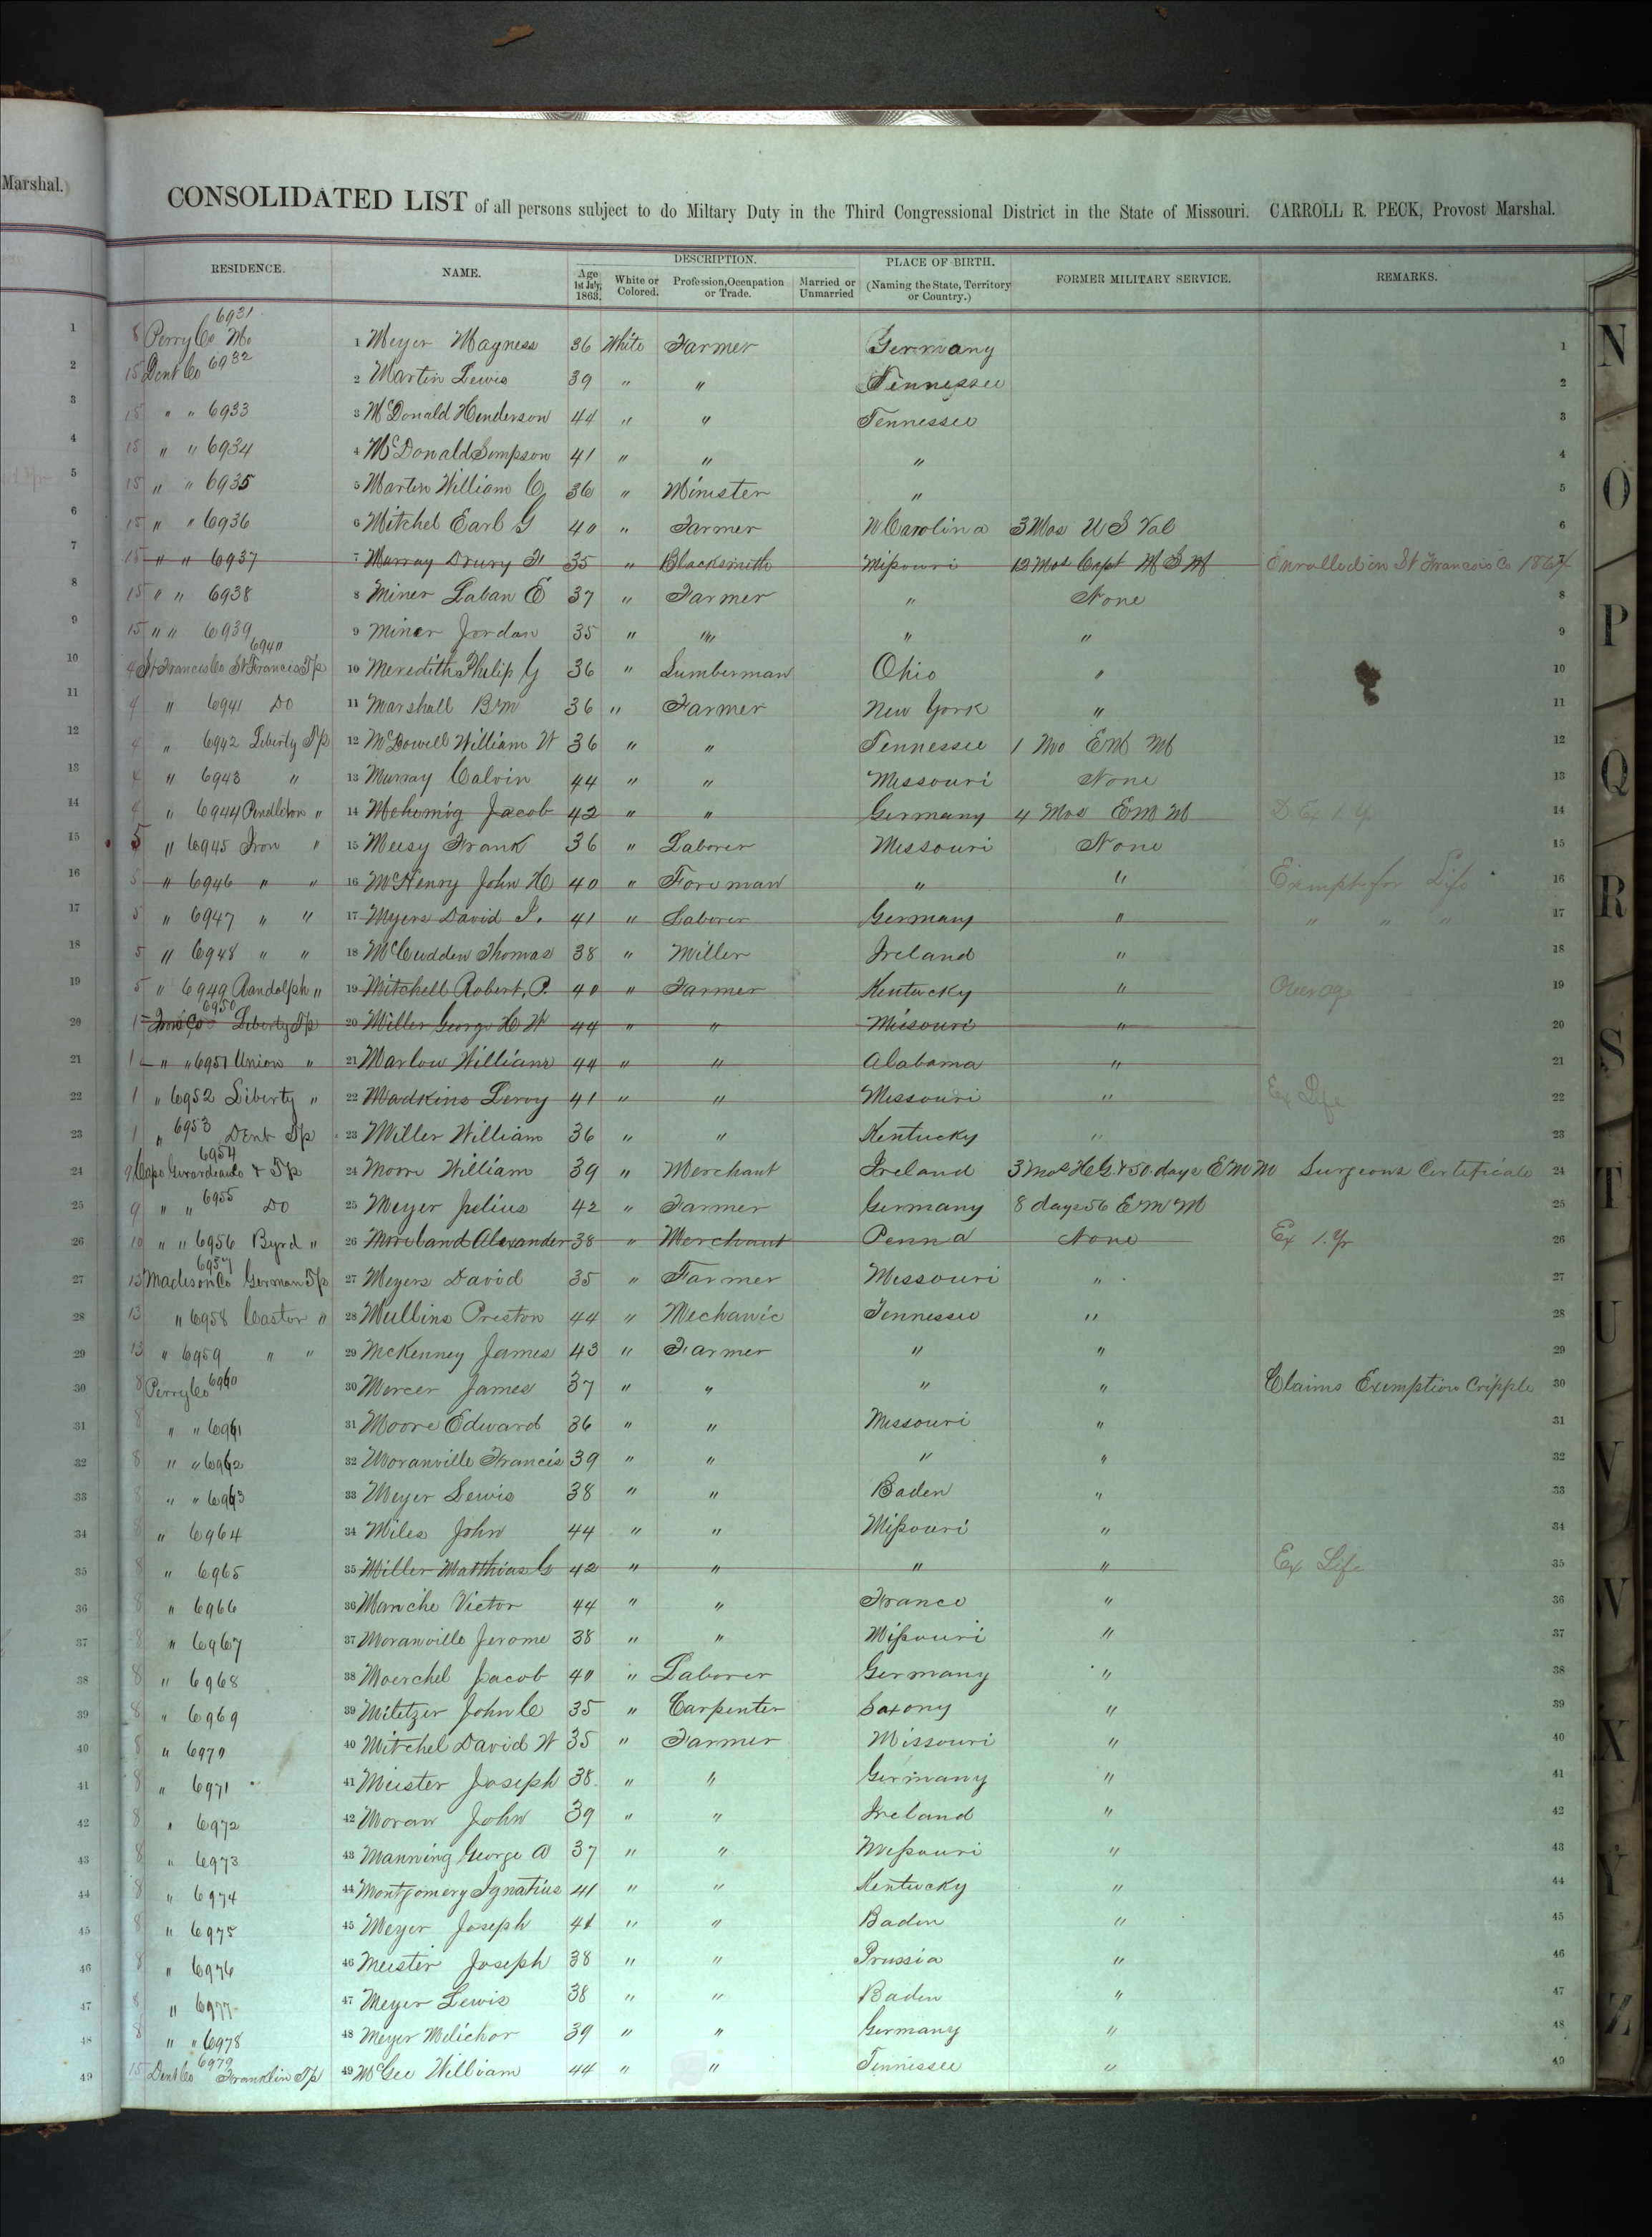 Marshal.)
CONSOLIDATED LIST of all persons subject to do Miltary Duty in the Third Congressional District in the State of Missouri. CARROLL R. PECK, Provost Marshal.
RESIDENCE. NAME. DESCRIPTION. PLACE OF BIRTH. FORMER MILITARY SERVICE. REMARKS.
Age 1st July, 1863. White or Colored. Profession, Occupation or Trade. Married or Unmarried (Naming the State, Territory or Country.)
1 8 Perry Co Mo 6931 1 Meyer Magness 36 White Farmer Germany 1
2 15 Dent Co 6932 2 Martin Lewis 39 " " Tennessee 2
3 15 " " 6933 3 McDonald Henderson 44 " " Tennessee 3
4 15 " " 6934 4 McDonald Simpson 41 " " " 4
5 15 " " 6935 5 Martin William C 36 " Minister " 5
6 15 " " 6936 6 Mitchel Earl G 40 " Farmer N Carolina 3 Mos U S Vol 6
7 15 " " 6937 7 Murray Drury F 35 " Blacksmith Missouri 12 Mos Capt M S M Enrolled in St Francois Co 1864 7
8 15 " " 6938 8 Miner Laban E 37 " Farmer " None 8
9 15 " " 6939 9 Miner Jordan 35 " " " " 9
10 4 St Francis Co St Francis Tp 6940 10 Meredith Philip G 36 " Lumberman Ohio " 10
11 4 " 6941 Do 11 Marshall Bm 36 " Farmer New York " 11
12 4 " 6942 Liberty Tp 12 McDowell William W 36 " " Tennessee 1 Mo E M M 12
13 4 " 6943 " 13 Murray Calvin 44 " " Missouri None 13
14 4 " 6944 Pendleton " 14 Mehornig Jacob 42 " " Germany 4 Mos E M M D. Ex 1 Yr 14
15 5 " 6945 Iron " 15 Meesy Frank 36 " Laborer Missouri None 15
16 5 " 6946 " " 16 McHenry John H 40 " Foreman " " Exempt for Life 16
17 5 " 6947 " " 17 Myers David I. 41 " Laborer Germany " " " " 17
18 5 " 6948 " " 18 McCudden Thomas 38 " Miller Ireland " 18
19 5 " 6949 Randolph " 19 Mitchell Robert. P. 40 " Farmer Kentucky " Overage 19
20 1 Iron Co 6950 Liberty Tp 20 Miller George H W 44 " " Missouri " 20
21 1 " " 6951 Union " 21 Marlow William 44 " " Alabama " 21
22 1 " 6952 Liberty " 22 Madkins Leroy 41 " " Missouri " Ex Life 22
23 1 " 6953 Dent Tp 23 Miller William 36 " " Kentucky " 23
24 9 Cape Girardeau Co & Tp 6954 24 Moore William 39 " Merchant Ireland 3 Mos H G. & 50. days E M M Surgeons Certificate 24
25 9 " " 6955 Do 25 Meyer Julius 42 " Farmer Germany 8 days 56 E M M 25
26 10 " " 6956 Byrd " 26 Moreland Alexander 38 " Merchant Penna None Ex 1. Yr 26
27 13 Madison Co 6957 German Tp 27 Meyers David 35 " Farmer Missouri " 27
28 13 " 6958 Castor " 28 Mullins Preston 44 " Mechanic Tennessee " 28
29 13 " 6959 " " 29 McKenney James 43 " Farmer " " 29
30 8 Perry Co 6960 30 Mercer James 37 " " " " Claims Exemption Cripple 30
31 8 " " 6961 31 Moore Edward 36 " " Missouri " 31
32 8 " " 6962 32 Moranville Francis 39 " " " " 32
33 8 " " 6963 33 Meyer Lewis 38 " " Baden " 33
34 8 " 6964 34 Miles John 44 " " Missouri " 34
35 8 " 6965 35 Miller Matthias G 42 " " " " Ex Life 35
36 8 " 6966 36 Maniche Victor 44 " " France " 36
37 8 " 6967 37 Moranville Jerome 38 " " Missouri " 37
38 8 " 6968 38 Moerchel Jacob 40 " Laborer Germany " 38
39 8 " 6969 39 Militzer John C 35 " Carpenter Saxony " 39
40 8 " 6970 40 Mitchel David W 35 " Farmer Missouri " 40
41 8 " 6971 41 Meister Joseph 38 " " Germany " 41
42 8 " 6972 42 Moran John 39 " " Ireland " 42
43 8 " 6973 43 Manning George A 37 " " Missouri " 43
44 8 " 6974 44 Montgomery Ignatius 41 " " Kentucky " 44
45 8 " 6975 45 Meyer Joseph 41 " " Baden " 45
46 8 " 6976 46 Meister Joseph 38 " " Prussia " 46
47 8 " 6977 47 Meyer Lewis 38 " " Baden " 47
48 8 " " 6978 48 Meyer Melichor 39 " " Germany " 48
49 15 Dent Co 6979 Franklin Tp 49 McGee William 44 " " Tennessee " 49
N
O
P
Q
R
S
T
U
V
W
X
Y
Z